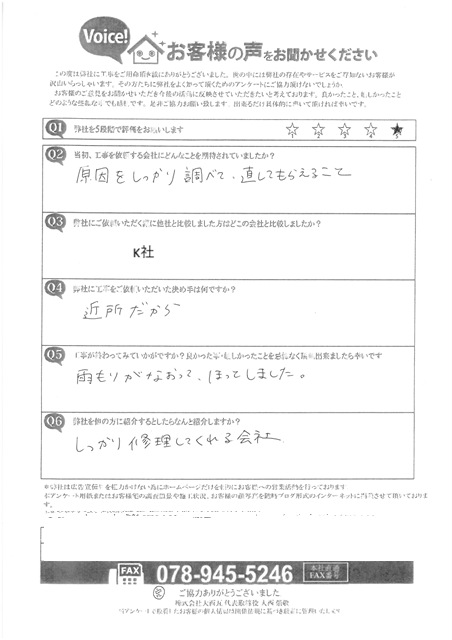 Voice!
お客様の声をお聞かせください
この度は弊社に工事をご用命頂き誠にありがとうございました。世の中には弊社の存在やサービスをご存知ないお客様が
沢山いらっしゃいます。その方たちに弊社をよく知って頂くためのアンケートにご協力頂けないでしょうか。
お客様のご意見をお聞かせいただき今後の活動に反映させていただきたいと考えております。良かったこと、悪しかったこと
どのような些細なことでも結構です。是非ご協力お願い致します。出来るだけ具体的に書いて頂ければ幸いです。
Q1 弊社を5段階で評価をお願いします ☆ ☆ ☆ ☆ ★
1 2 3 4 5
Q2 当初、工事を依頼する会社にどんなことを期待されていましたか?
原因をしっかり調べて、直してもらえること
Q3 弊社にご依頼いただく際に他社と比較しました方はどこの会社と比較しましたか?
K社
Q4 弊社に工事をご依頼いただいた決め手は何ですか?
近所だから
Q5 工事が終わってみていかがですか?良かった事・悪しかったことを感じなく仰出来ましたら幸いです
雨もりがなおって、ほっとしました。
Q6 弊社を他の方に紹介するとしたらなんと紹介しますか?
しっかり修理してくれる会社
FAX 078-945-5246 本社直通 FAX番号
ご協力ありがとうございました